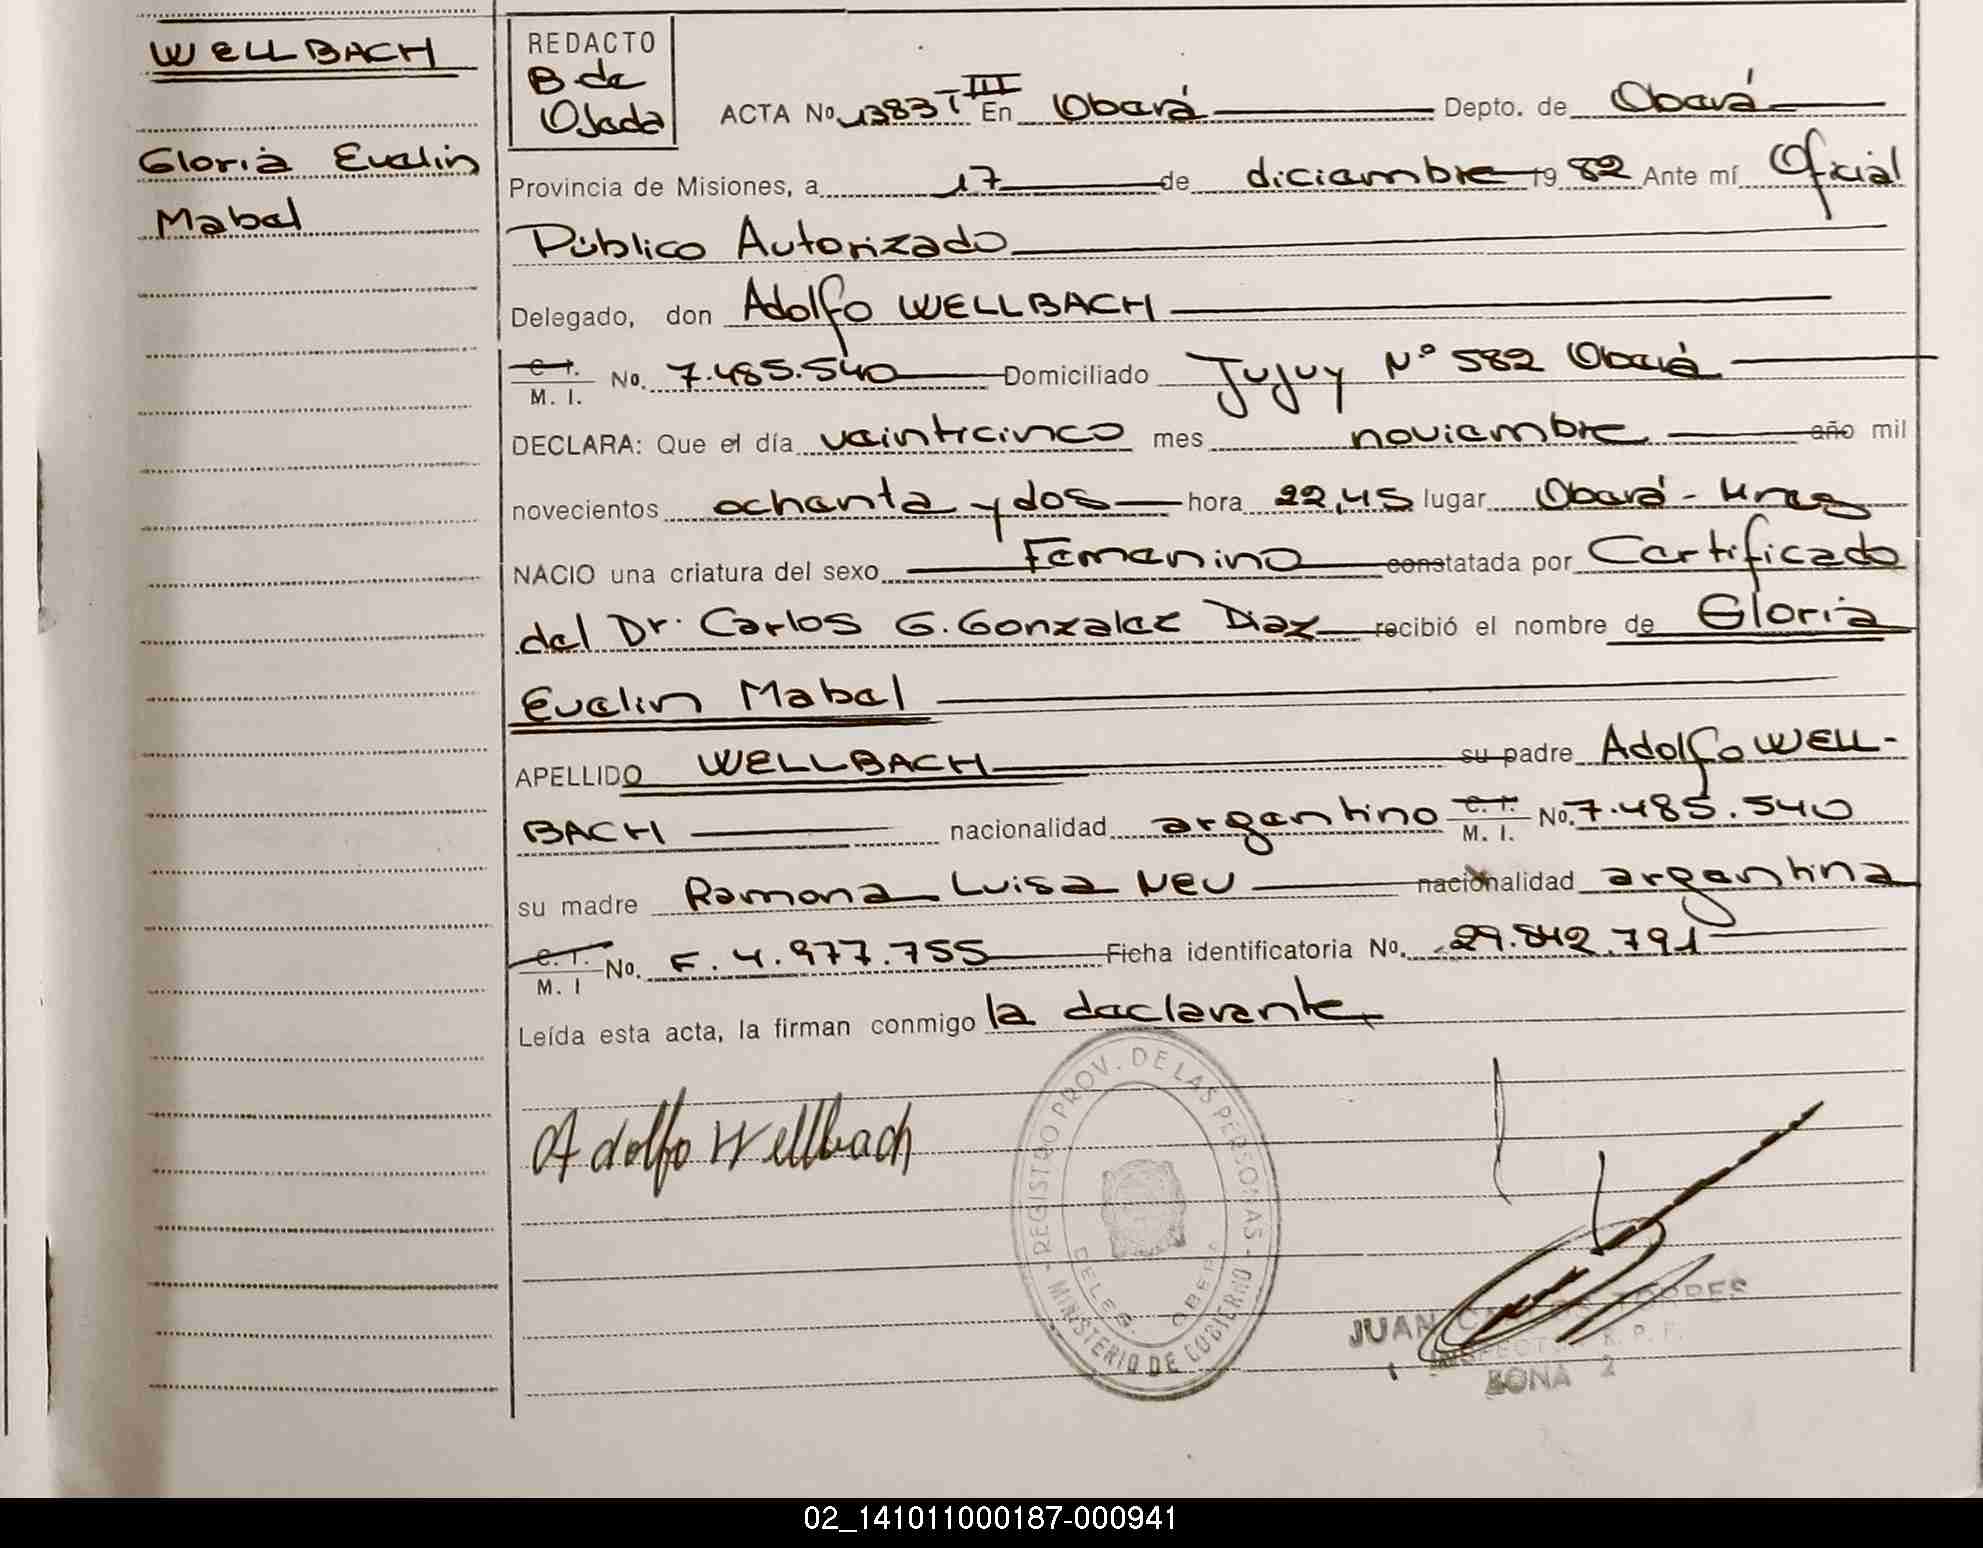 WELLBACH
Gloria Evelin
Mabel
REDACTO
B de
Ojeda
ACTA No. 1383 T III En Oberá Depto. de Oberá
Provincia de Misiones, a 17 de diciembre 19 82 Ante mí Oficial
Público Autorizado
Delegado, don Adolfo WELLBACH
C. I. M. I. No. 7.485.540 Domiciliado Jujuy Nº 582 Oberá
DECLARA: Que el día veinticinco mes noviembre año mil
novecientos ochenta y dos hora 22,45 lugar Oberá - Mnes
NACIO una criatura del sexo Femenino constatada por Certificado
del Dr. Carlos G. Gonzalez Diaz recibió el nombre de Gloria
Evelin Mabel
APELLIDO WELLBACH su padre Adolfo WELL-
BACH nacionalidad argentino C. I. M. I. No. 7.485.540
su madre Ramona Luisa Neu nacionalidad argentina
C. I. M. I No. F. 4.977.755 Ficha identificatoria No. 29.842.791
Leída esta acta, la firman conmigo la declarante
Adolfo Wellbach
REGISTRO PROV. DE LAS PERSONAS - MINISTERIO DE GOBIERNO -
DELEG. OBERA
JUAN TORRES
INSPECTOR R. P. P.
ZONA 2
02_141011000187-000941